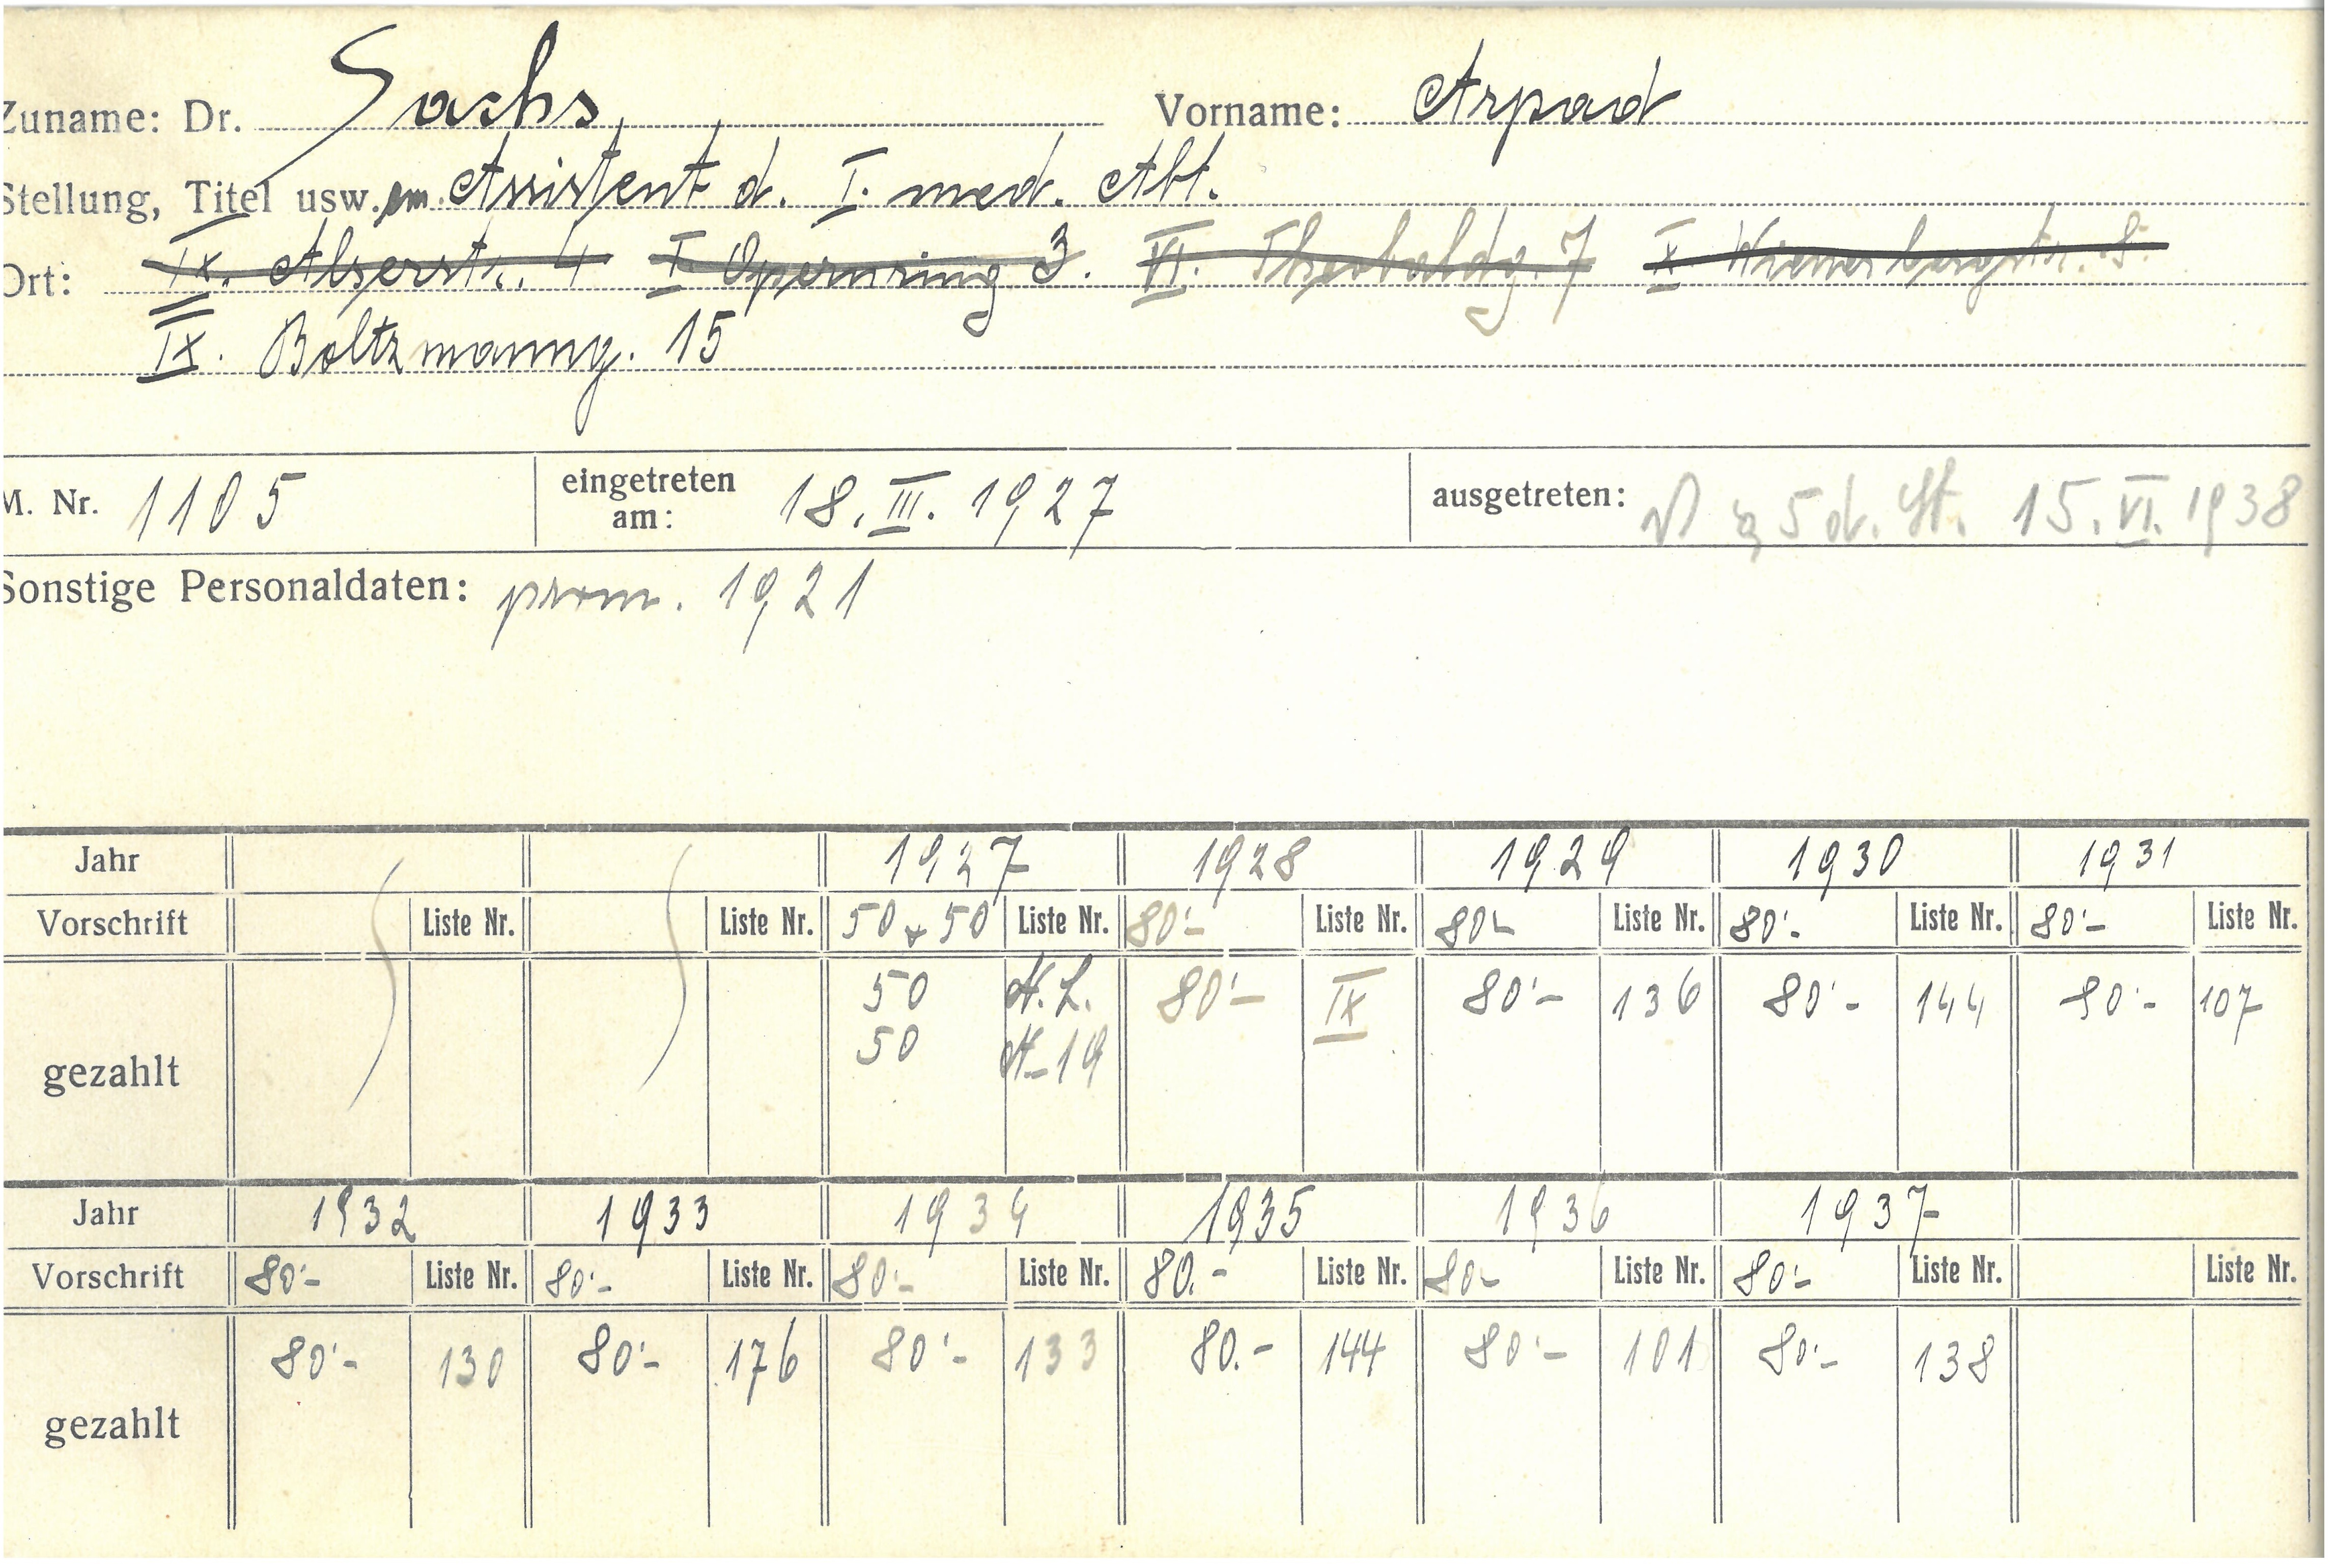 Zuname: Dr. Sachs Vorname: Arpad
Stellung, Titel usw. em. Assistent d. I. med. Abt.
Ort: IX. Alserstr. 4 I Opernring 3. VI. Theobaldg. 7 X Wienerbergstr. 8.
IX. Boltzmanng. 15
M. Nr. 1105 eingetreten am: 18. III. 1927 ausgetreten: § 5 d. St. 15. VI. 1938
Sonstige Personaldaten: prom. 1921
Jahr 1927 1928 1929 1930 1931
Vorschrift Liste Nr. Liste Nr. 50+50 Liste Nr. 80'- Liste Nr. 80'- Liste Nr. 80'- Liste Nr. 80'- Liste Nr.
gezahlt 50 80'- IX 80'- 136 80'- 144 80'- 107
50 19
Jahr 1932 1933 1934 1935 1936 1937
Vorschrift 80'- Liste Nr. 80'- Liste Nr. 80'- Liste Nr. 80.- Liste Nr. 80'- Liste Nr. 80'- Liste Nr. Liste Nr.
gezahlt 80'- 130 80'- 176 80'- 133 80.- 144 80'- 101 80'- 138